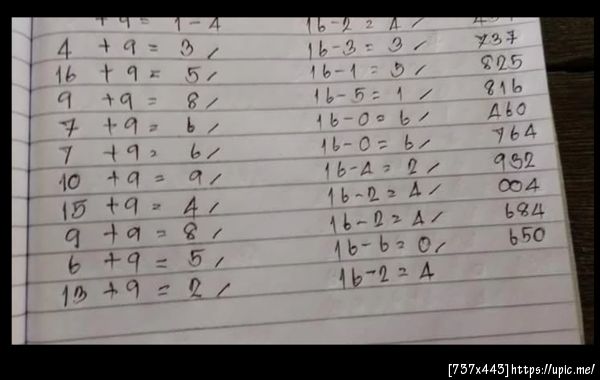 +9 = 1-4 16-2 = 4/
4 +9 = 3/ 16-3 = 3/ 737
16 +9 = 5/ 16-1 = 5/ 825
9 +9 = 8/ 16-5 = 1/ 816
7 +9 = 6/ 16-0 = 6/ 460
7 +9 = 6/ 16-0 = 6/ 764
10 +9 = 9/ 16-4 = 2/ 932
15 +9 = 4/ 16-2 = 4/ 004
9 +9 = 8/ 16-2 = 4/ 684
6 +9 = 5/ 16-6 = 0/ 650
13 +9 = 2/ 16-2 = 4
[737x443]https://upic.me/